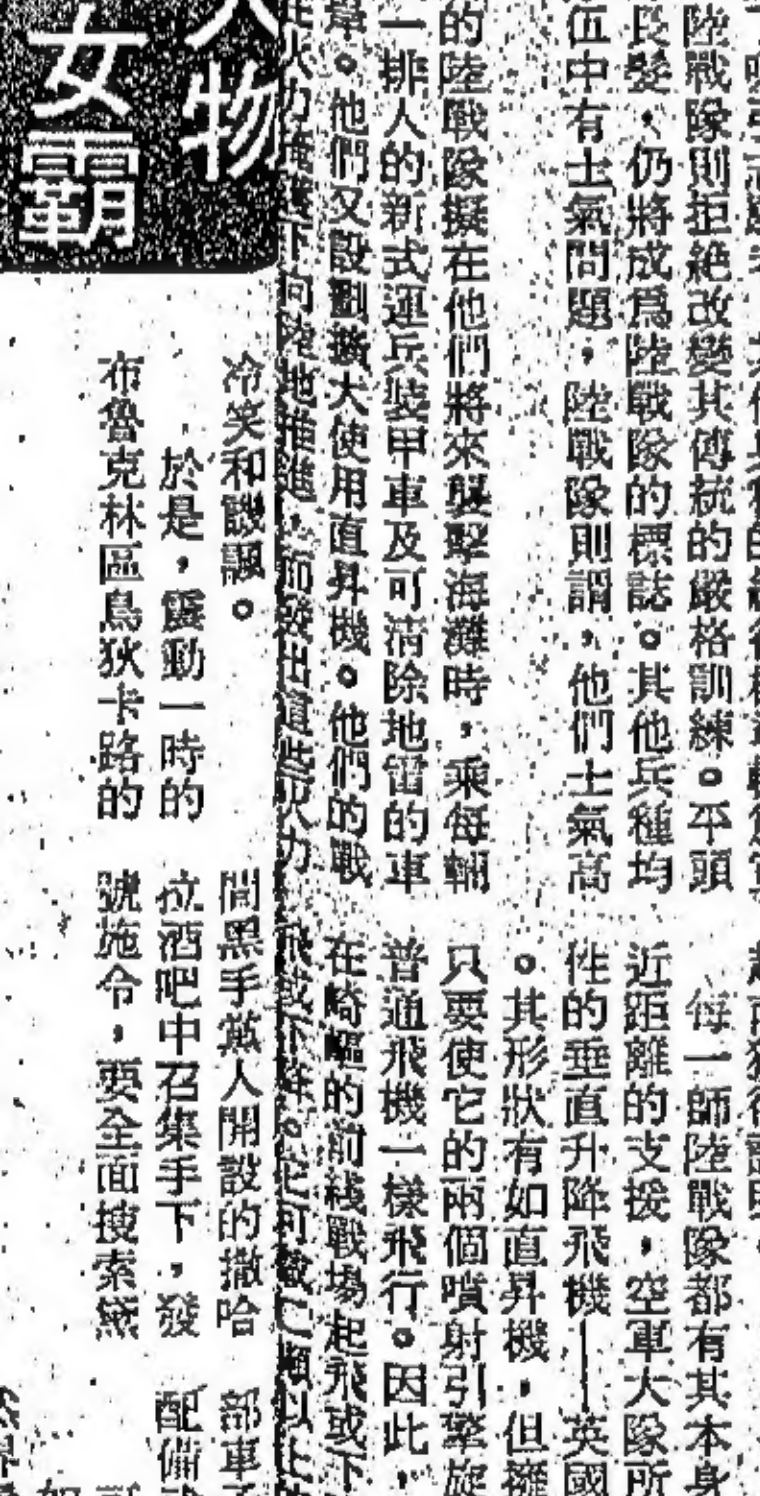 陸戰隊則拒絕改變其傳統的嚴格訓練。平頭
長髮，仍將成爲陸戰隊的標誌。其他兵種均
伍中有士氣問題，陸戰隊則謂，他們士氣高
的陸戰隊擬在他們將來襲擊海灘時，乘每輛
一排人的新式運兵裝甲車及可清除地雷的車
。他們又設劃擴大使用直昇機。他們的戰
下向陸地推進，而發出這些火力
每一師陸戰隊都有其本身
近距離的支援，空軍大隊所
性的垂直升降飛機——英國
。其形狀有如直昇機，但擁
只要使它的兩個噴射引擎旋
普通飛機一樣飛行。因此，
在崎嶇的前綫戰場起飛或下
物
女霸
冷笑和譏諷。
於是，震動一時的
布魯克林區鳥狄卡路的
間黑手黨人開設的撒哈
拉酒吧中召集手下，發
號施令，要全面搜索黛
部車
配備